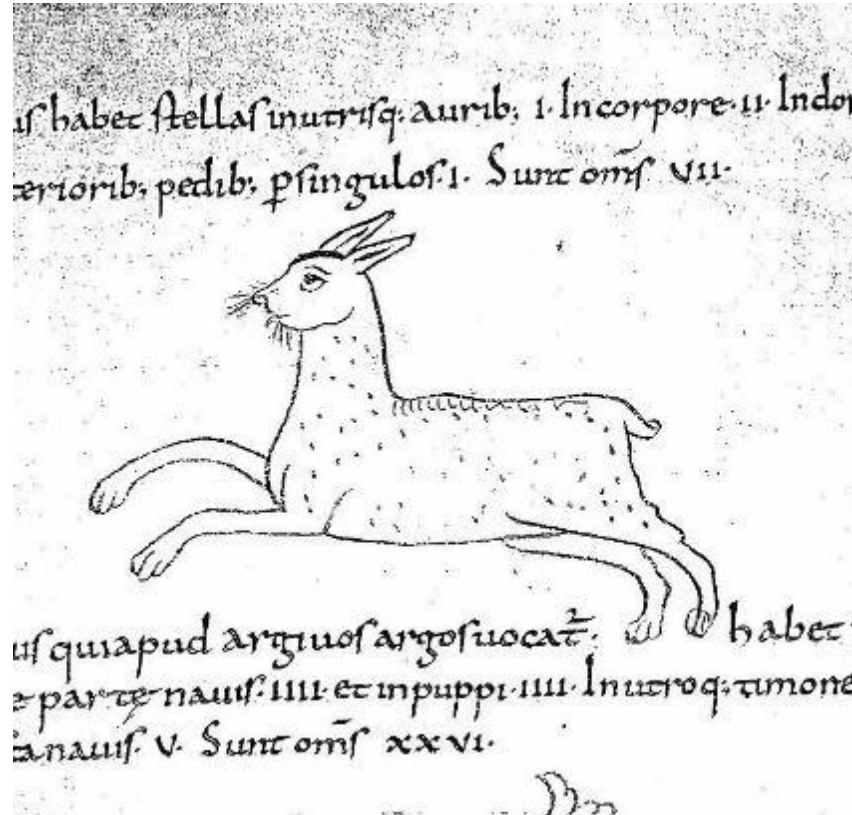 us habet stellas inutrisq; aurib; ·I· In corpore ·II· Indor
teriorib; pedib; p singulos ·I· Sunt om̄s VII·
us qui apud argiuos argos uocat᷑· habet
e parte nauis· IIII· et in puppi· IIII· In utroq; timone
ta nauis· V· Sunt om̄s XXVI·